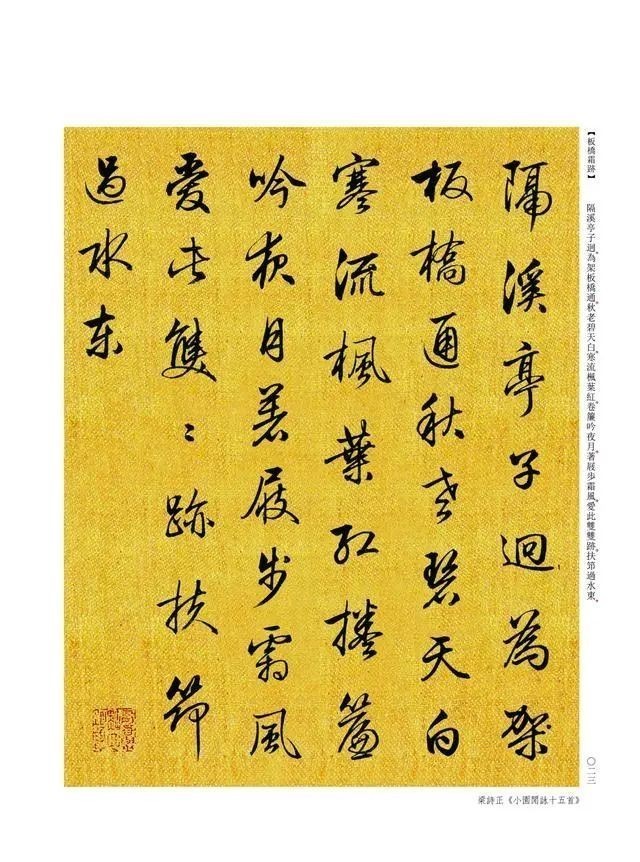 【板橋霜跡】
隔溪亭子迥。為架板橋通。秋老碧天白。寒流楓葉紅。卷簾吟夜月。著屐步霜風。愛此雙雙跡。扶筇過水東。
隔溪亭子迥為架
板橋通秋老碧天白
寒流楓葉紅捲簾
吟夜月著屐步霜風
愛此雙〻跡扶筇
過水東
〇二三
梁詩正《小園閒詠十五首》